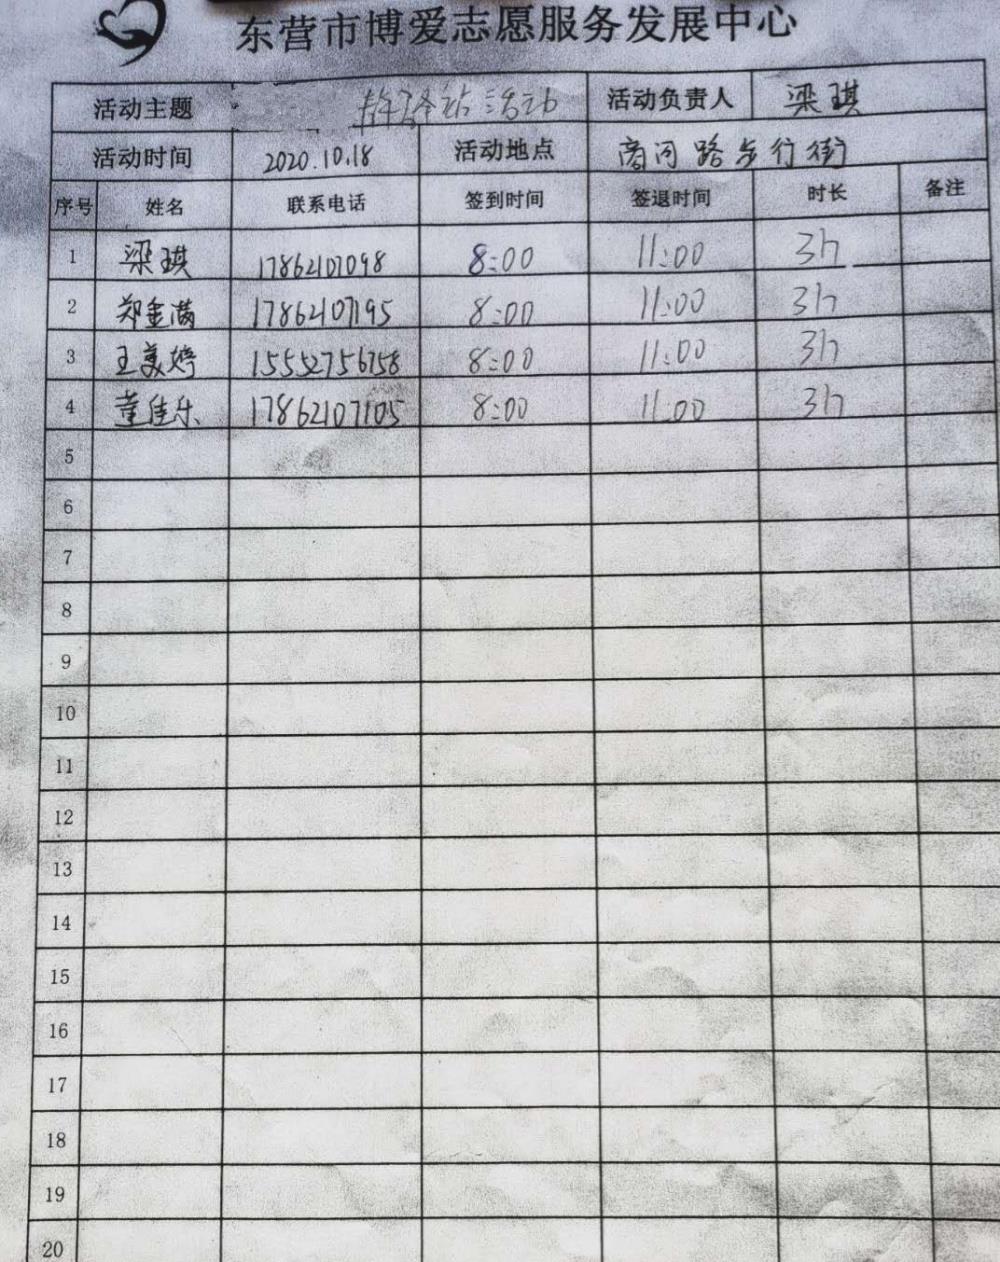 东营市博爱志愿服务发展中心
活动主题 站活动 活动负责人 梁琪
活动时间 2020.10.18 活动地点 商河路步行街
序号 姓名 联系电话 签到时间 签退时间 时长 备注
1 梁琪 17862107098 8:00 11:00 3h
2 郑金满 17862107195 8:00 11:00 3h
3 王美婷 15552756758 8:00 11:00 3h
4 董佳乐 17862107105 8:00 11:00 3h
5
6
7
8
9
10
11
12
13
14
15
16
17
18
19
20